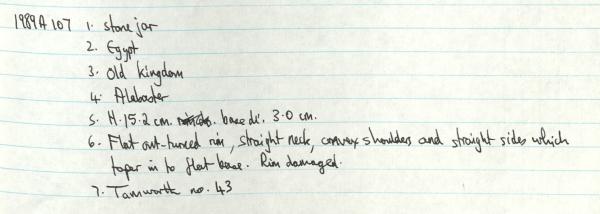 1989A107 1. Stone jar
2. Egypt
3. Old Kingdom
4. Alabaster
5. H. 15.2 cm. base di. 3.0 cm.
6. Flat out-turned rim, straight neck, convex shoulders and straight sides which
taper in to flat base. Rim damaged.
7. Tamworth no. 43